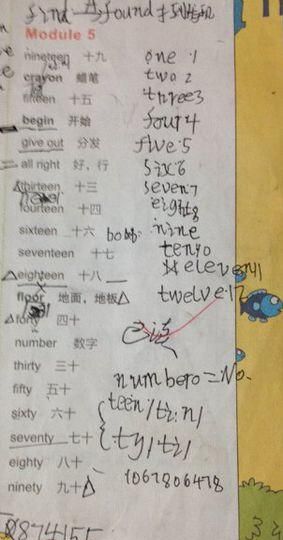 find → found 找到
Module 5
nineteen 十九 one 1
crayon 蜡笔 two 2
fifteen 十五 three3
begin 开始 four4
give out 分发 five 5
all right 好，行 six6
thirteen 十三 seven7
fourteen 十四 eight8
sixteen 十六 nine
seventeen 十七 ten10
eighteen 十八 eleven11
floor 地面，地板 twelve 12
forty 四十 已读
number 数字
thirty 三十 number=No.
fifty 五十 teen/ti:n/
sixty 六十
seventy 七十 ty/ti/
eighty 八十 1067806478
ninety 九十